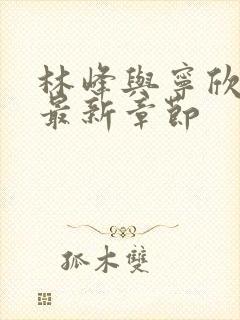 林峰與寧欣
最新章節
孤木雙